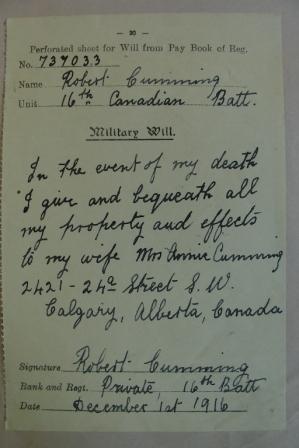 — 20 —
Perforated sheet for Will from Pay Book of Reg.
No. 737033
Name Robert Cumming
Unit 16th Canadian Batt.
Military Will.
In the event of my death
I give and bequeath all
my property and effects
to my wife Mrs Annie Cumming
2421 - 24a Street S.W.
Calgary, Alberta, Canada
Signature Robert Cumming
Rank and Regt. Private, 16th Batt
Date December 1st 1916